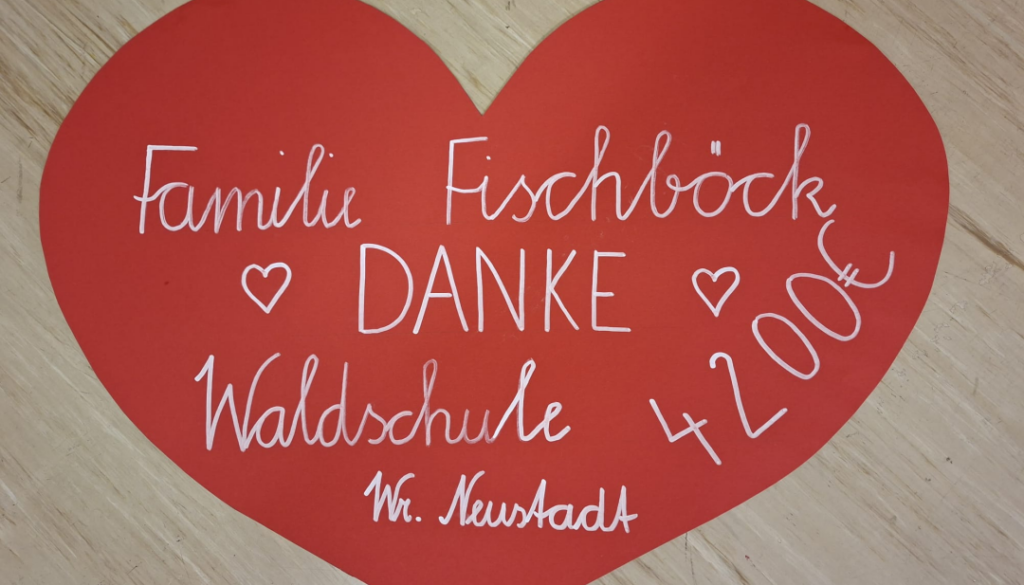 Familie Fischböck
♡ DANKE ♡
4200€
Waldschule
Wr. Neustadt